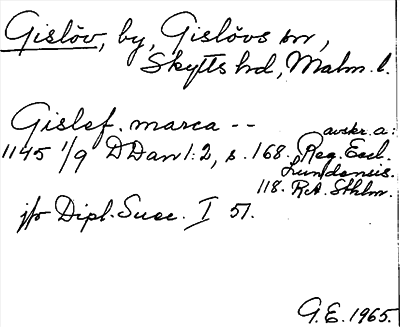 Gislöv, by, Gislövs sn,
Skytts hd, Malm. l.
Gislef. marca --
avskr. a:
1145 1/9 DDan 1:2, s. 168. Reg. Eccl.
Lundensis.
118. RA. Sthlm.
jfr Dipl. Suec. I 51.
G.E. 1965.